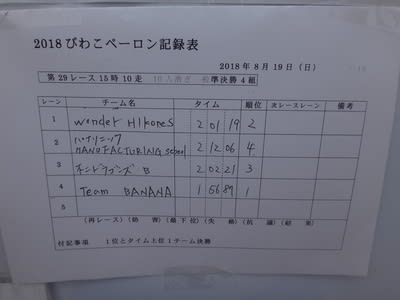 2018びわこペーロン記録表
2018年8月19日(日)
第29レース15時10走 10人漕ぎ 般準決勝4組
レーン チーム名 タイム 順位 次レースレーン 備考
1 Wonder HIKONES 2 01 19 2
2 パナソニック MANUFACTURING School 2 12 06 4
3 ドラゴンズ B 2 02 21 3
4 Team BANANA 1 56 89 1
5
(再レース) (妨 害) (最下位) (失 格) (抗 議) (結 果)
付記事項 1位とタイム上位1チーム決勝